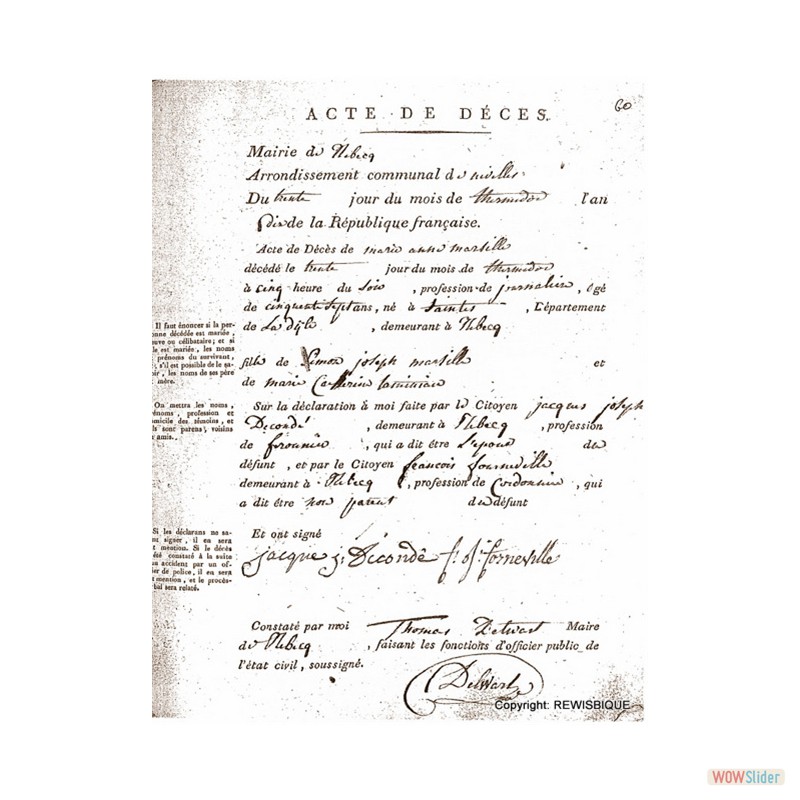 60
ACTE DE DÉCES.
Mairie de Rebecq
Arrondissement communal de nivelles
Du trente jour du mois de thermidor l'an
dix de la République française.
Acte de Décès de marie anne marsille
décédé le trente jour du mois de thermidor
à cinq heure du soir , profession de journaliere , âgé
de cinquante sept ans, né à Saintes , Département
de La dyle , demeurant à Rebecq
fille de Simon joseph marsille et
de marie Catherine
Sur la déclaration à moi faite par le Citoyen jacques joseph
Decondé , demeurant à Rebecq , profession
de , qui a dit être L'epoux du
défunt , et par le Citoyen francois fourneville
demeurant à Rebecq , profession de Cordonnier , qui
a dit être non parent du défunt
Et ont signé
jacque j: Decondé f. j. forneville
Constaté par moi Thomas Delwart Maire
de Rebecq , faisant les fonctions d'officier public de
l'état civil, soussigné.
Delwart
Il faut énoncer si la per-
onne décédée est mariée,
euve ou célibataire; et si
le est mariée, les noms
prénoms du survivant,
, s'il est possible de le sa-
ir, les noms de ses père
mère.
On mettra les noms,
énoms, profession et
omicile des témoins, et
ils sont parens, voisins
amis.
Si les déclarans ne sa-
nt signer, il en sera
t mention. Si le décès
été constaté à la suite
n accident par un of-
er de police, il en sera
t mention, et le procès-
bal sera relaté.
Copyright: REWISBIQUE
WOWSlider